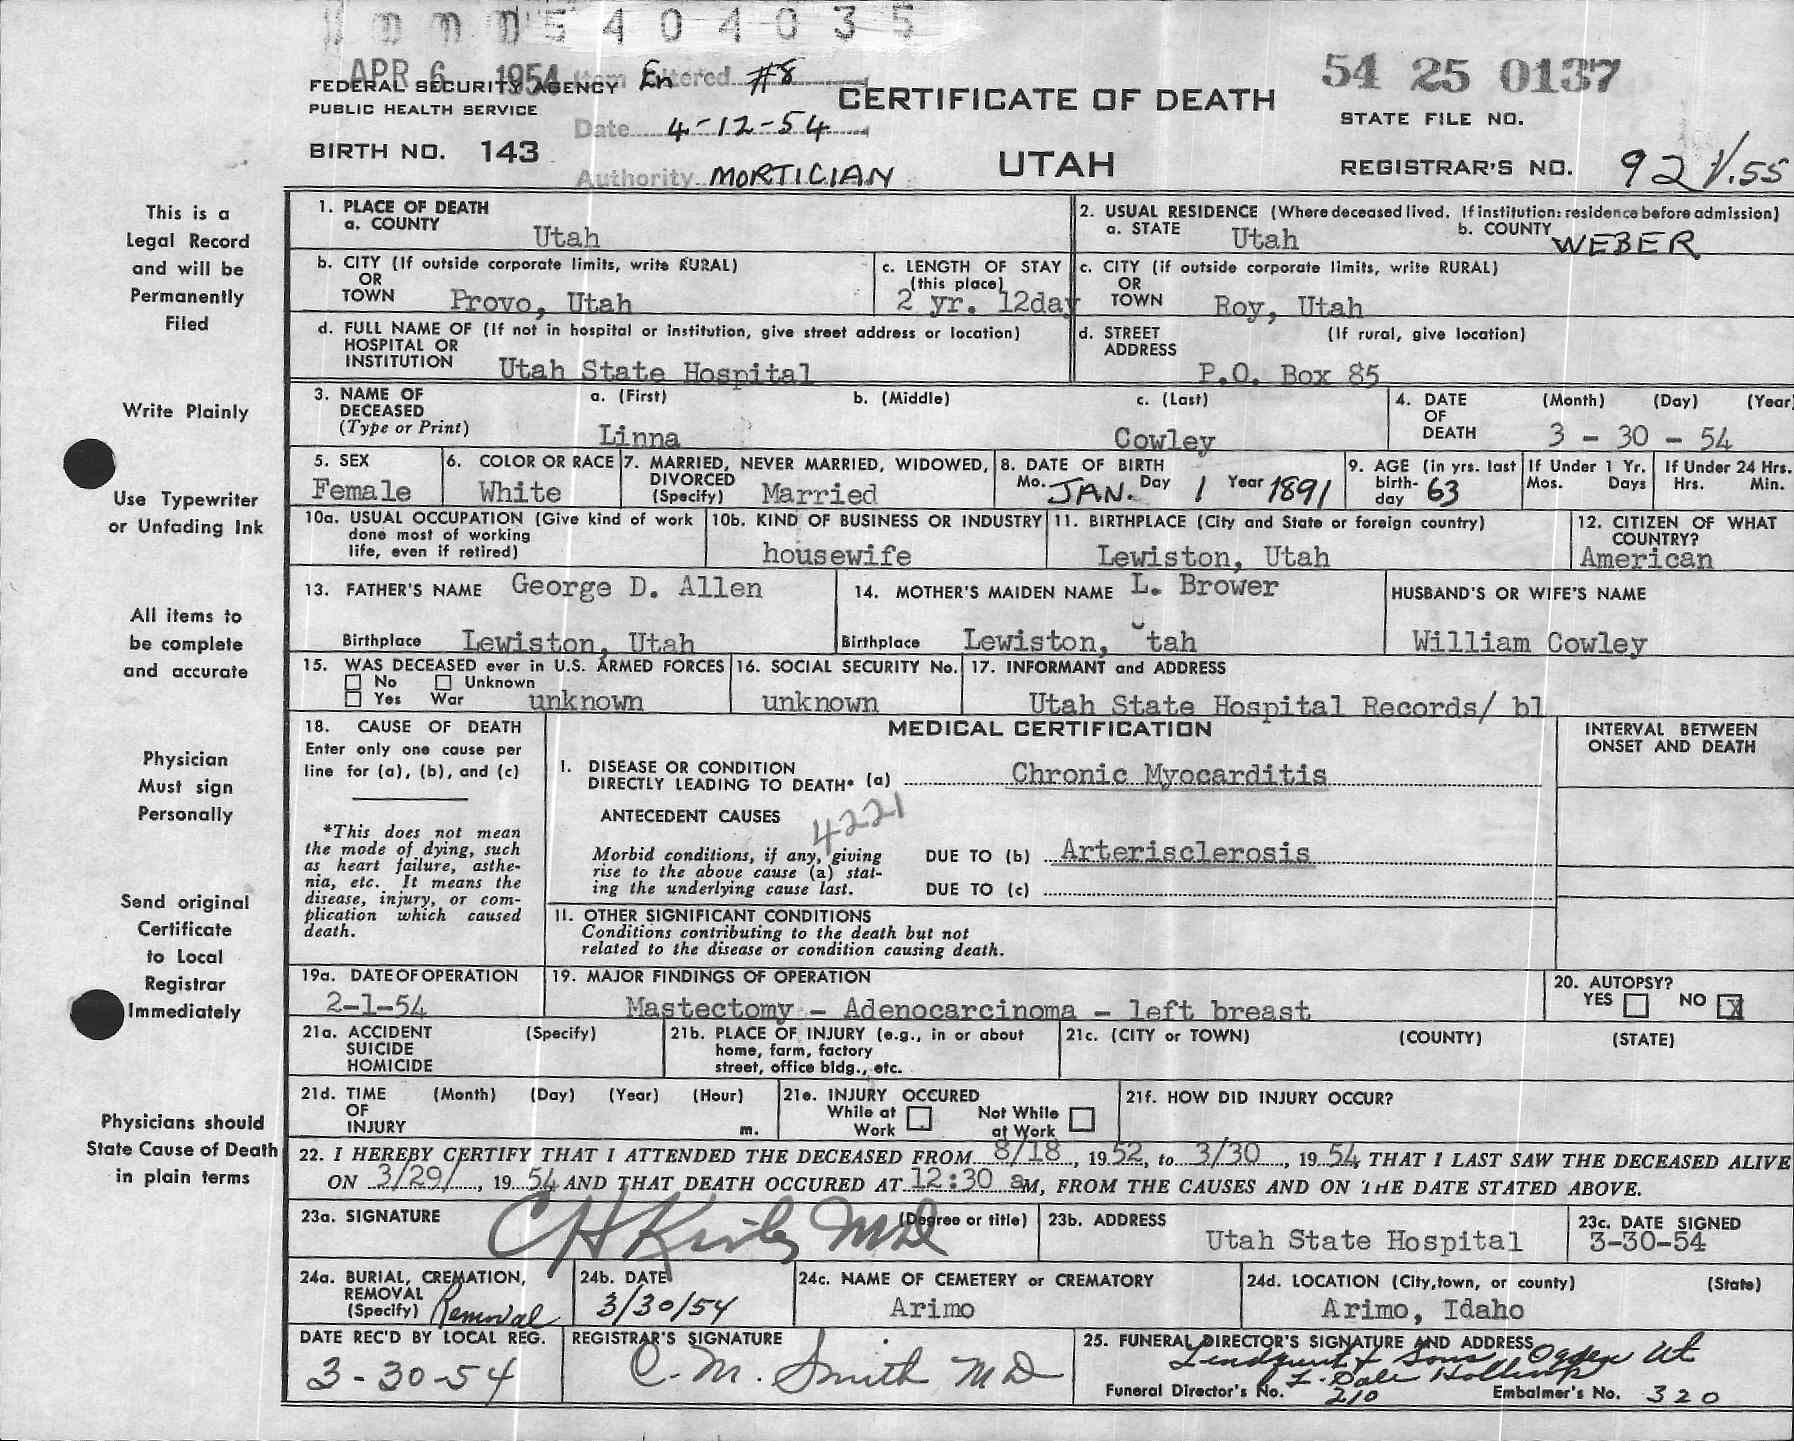 54 04035
APR 6 1954 Item Entered En #8
FEDERAL SECURITY AGENCY
PUBLIC HEALTH SERVICE
Date 4-12-54
BIRTH NO. 143
Authority MORTICIAN
CERTIFICATE OF DEATH
UTAH
54 25 0137
STATE FILE NO.
REGISTRAR'S NO. 92
This is a
Legal Record
and will be
Permanently
Filed
Write Plainly
Use Typewriter
or Unfading Ink
All items to
be complete
and accurate
Physician
Must sign
Personally
Send original
Certificate
to Local
Registrar
Immediately
Physicians should
State Cause of Death
in plain terms
1. PLACE OF DEATH
a. COUNTY Utah
2. USUAL RESIDENCE (Where deceased lived. If institution: residence before admission)
a. STATE Utah b. COUNTY WEBER
b. CITY (If outside corporate limits, write RURAL)
OR
TOWN Provo, Utah
c. LENGTH OF STAY
(this place)
2 yr. 12day
c. CITY (if outside corporate limits, write RURAL)
OR
TOWN Roy, Utah
d. FULL NAME OF (If not in hospital or institution, give street address or location)
HOSPITAL OR
INSTITUTION Utah State Hospital
d. STREET (If rural, give location)
ADDRESS
P.O. Box 85
3. NAME OF a. (First) b. (Middle) c. (Last)
DECEASED
(Type or Print) Linna Cowley
4. DATE (Month) (Day) (Year)
OF
DEATH 3 - 30 - 54
5. SEX
Female
6. COLOR OR RACE
White
7. MARRIED, NEVER MARRIED, WIDOWED,
DIVORCED
(Specify) Married
8. DATE OF BIRTH
Mo. JAN. Day 1 Year 1891
9. AGE (in yrs. last
birth-
day 63
If Under 1 Yr.
Mos. Days
If Under 24 Hrs.
Hrs. Min.
10a. USUAL OCCUPATION (Give kind of work
done most of working
life, even if retired)
10b. KIND OF BUSINESS OR INDUSTRY
housewife
11. BIRTHPLACE (City and State or foreign country)
Lewiston, Utah
12. CITIZEN OF WHAT
COUNTRY?
American
13. FATHER'S NAME George D. Allen
Birthplace Lewiston, Utah
14. MOTHER'S MAIDEN NAME L. Brower
Birthplace Lewiston, Utah
HUSBAND'S OR WIFE'S NAME
William Cowley
15. WAS DECEASED ever in U.S. ARMED FORCES
No Unknown
Yes War unknown
16. SOCIAL SECURITY No.
unknown
17. INFORMANT and ADDRESS
Utah State Hospital Records/ bl
18. CAUSE OF DEATH
Enter only one cause per
line for (a), (b), and (c)
*This does not mean
the mode of dying, such
as heart failure, asthe-
nia, etc. It means the
disease, injury, or com-
plication which caused
death.
MEDICAL CERTIFICATION
INTERVAL BETWEEN
ONSET AND DEATH
I. DISEASE OR CONDITION
DIRECTLY LEADING TO DEATH* (a) Chronic Myocarditis
ANTECEDENT CAUSES
4221
Morbid conditions, if any, giving
rise to the above cause (a) stat-
ing the underlying cause last.
DUE TO (b) Arterisclerosis
DUE TO (c)
II. OTHER SIGNIFICANT CONDITIONS
Conditions contributing to the death but not
related to the disease or condition causing death.
19a. DATE OF OPERATION
2-1-54
19. MAJOR FINDINGS OF OPERATION
Mastectomy - Adenocarcinoma - left breast
20. AUTOPSY?
YES NO X
21a. ACCIDENT (Specify)
SUICIDE
HOMICIDE
21b. PLACE OF INJURY (e.g., in or about
home, farm, factory
street, office bldg., etc.
21c. (CITY or TOWN) (COUNTY) (STATE)
21d. TIME (Month) (Day) (Year) (Hour)
OF
INJURY m.
21e. INJURY OCCURED
While at Not While
Work at Work
21f. HOW DID INJURY OCCUR?
22. I HEREBY CERTIFY THAT I ATTENDED THE DECEASED FROM 8/18, 1952, to 3/30, 1954, THAT I LAST SAW THE DECEASED ALIVE
ON 3/29/, 1954 AND THAT DEATH OCCURED AT 12:30 aM, FROM THE CAUSES AND ON THE DATE STATED ABOVE.
23a. SIGNATURE (Degree or title)
MD
23b. ADDRESS
Utah State Hospital
23c. DATE SIGNED
3-30-54
24a. BURIAL, CREMATION,
REMOVAL
(Specify) Removal
24b. DATE
3/30/54
24c. NAME OF CEMETERY or CREMATORY
Arimo
24d. LOCATION (City,town, or county) (State)
Arimo, Idaho
DATE REC'D BY LOCAL REG.
3-30-54
REGISTRAR'S SIGNATURE
C. M. Smith MD
25. FUNERAL DIRECTOR'S SIGNATURE AND ADDRESS
Sons Ogden Ut
Funeral Director's No. 210 Embalmer's No. 320